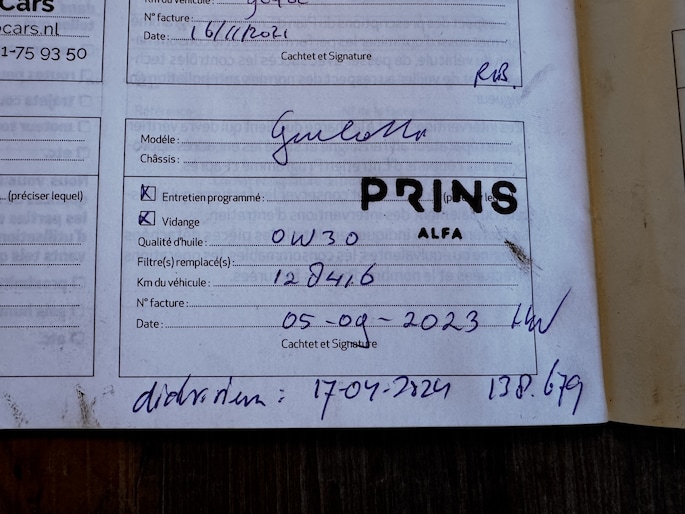 Cars
cars.nl
1-75 93 50
Km du véhicule :
N° facture :
Date : 16/11/2021
Cachtet et Signature
R.B.
Modèle : Giulietta
Châssis :
(préciser lequel)
Entretien programmé :
PRINS
ALFA
Vidange
Qualité d'huile : 0W30
Filtre(s) remplacé(s) :
Km du véhicule : 128416
N° facture :
Date : 05-09-2023
Cachtet et Signature
17-04-2024 138.679